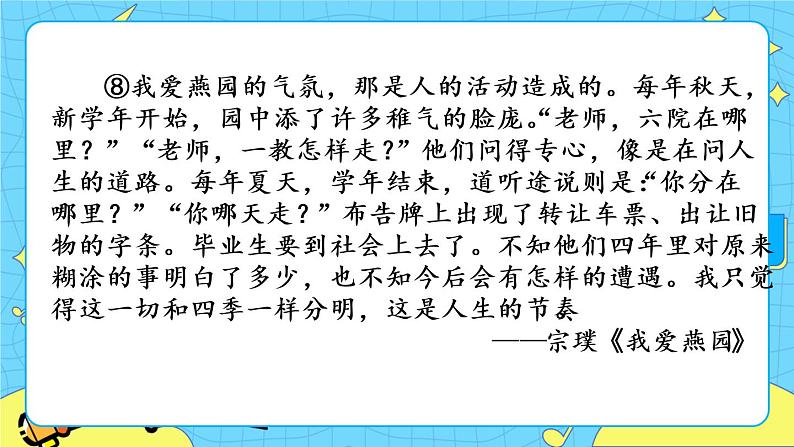 ⑧我爱燕园的气氛，那是人的活动造成的。每年秋天，
新学年开始，园中添了许多稚气的脸庞。“老师，六院在哪
里？”“老师，一教怎样走？”他们问得专心，像是在问人
生的道路。每年夏天，学年结束，道听途说则是：“你分在
哪里？”“你哪天走？”布告牌上出现了转让车票、出让旧
物的字条。毕业生要到社会上去了。不知他们四年里对原来
糊涂的事明白了多少，也不知今后会有怎样的遭遇。我只觉
得这一切和四季一样分明，这是人生的节奏
——宗璞《我爱燕园》